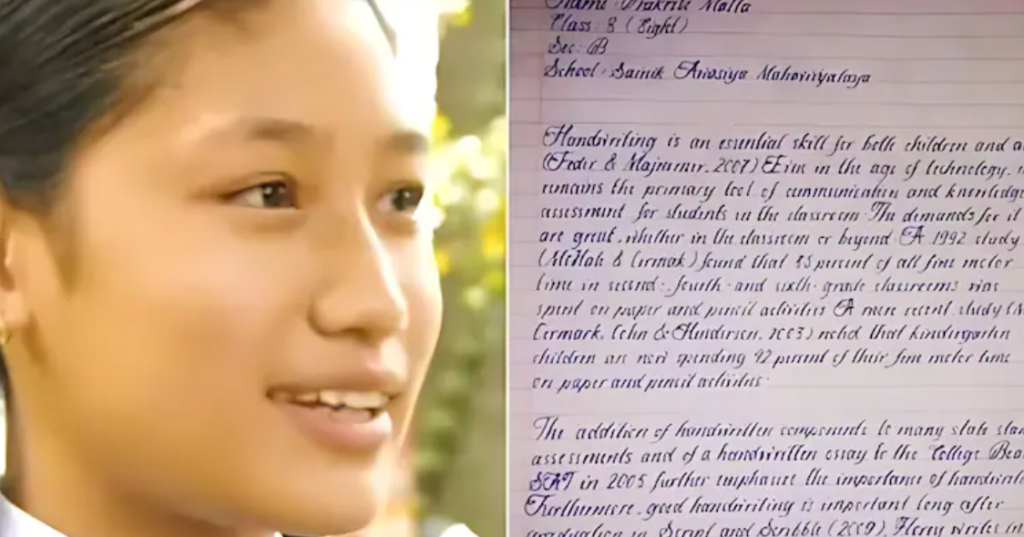 Prakriti Malla
Class : 8 (Eight)
Sec : B
School : Sainik Awasiya Mahavidyalaya
Handwriting is an essential skill for both children and
(Feder & Majnemer, 2007) Even in the age of technology, it
remains the primary tool of communication and knowledge
assessment for students in the classroom. The demands for it
are great, whether in the classroom or beyond. A 1992 study
(& Cermak) found that 85 percent of all fine motor
time in second-, fourth- and sixth-grade classrooms was
spent on paper and pencil activities. A more recent study
Cermark, Cohn & Henderson, 2003) noted that kindergarten
children are now spending 42 percent of their fine motor time
on paper and pencil activities.
The addition of handwritten components to many state
assessments and of a handwritten essay to the College
SAT in 2005 further emphasize the importance of
Furthermore, good handwriting is important long after
graduation. In Script and Scribble (2009), Florey writes